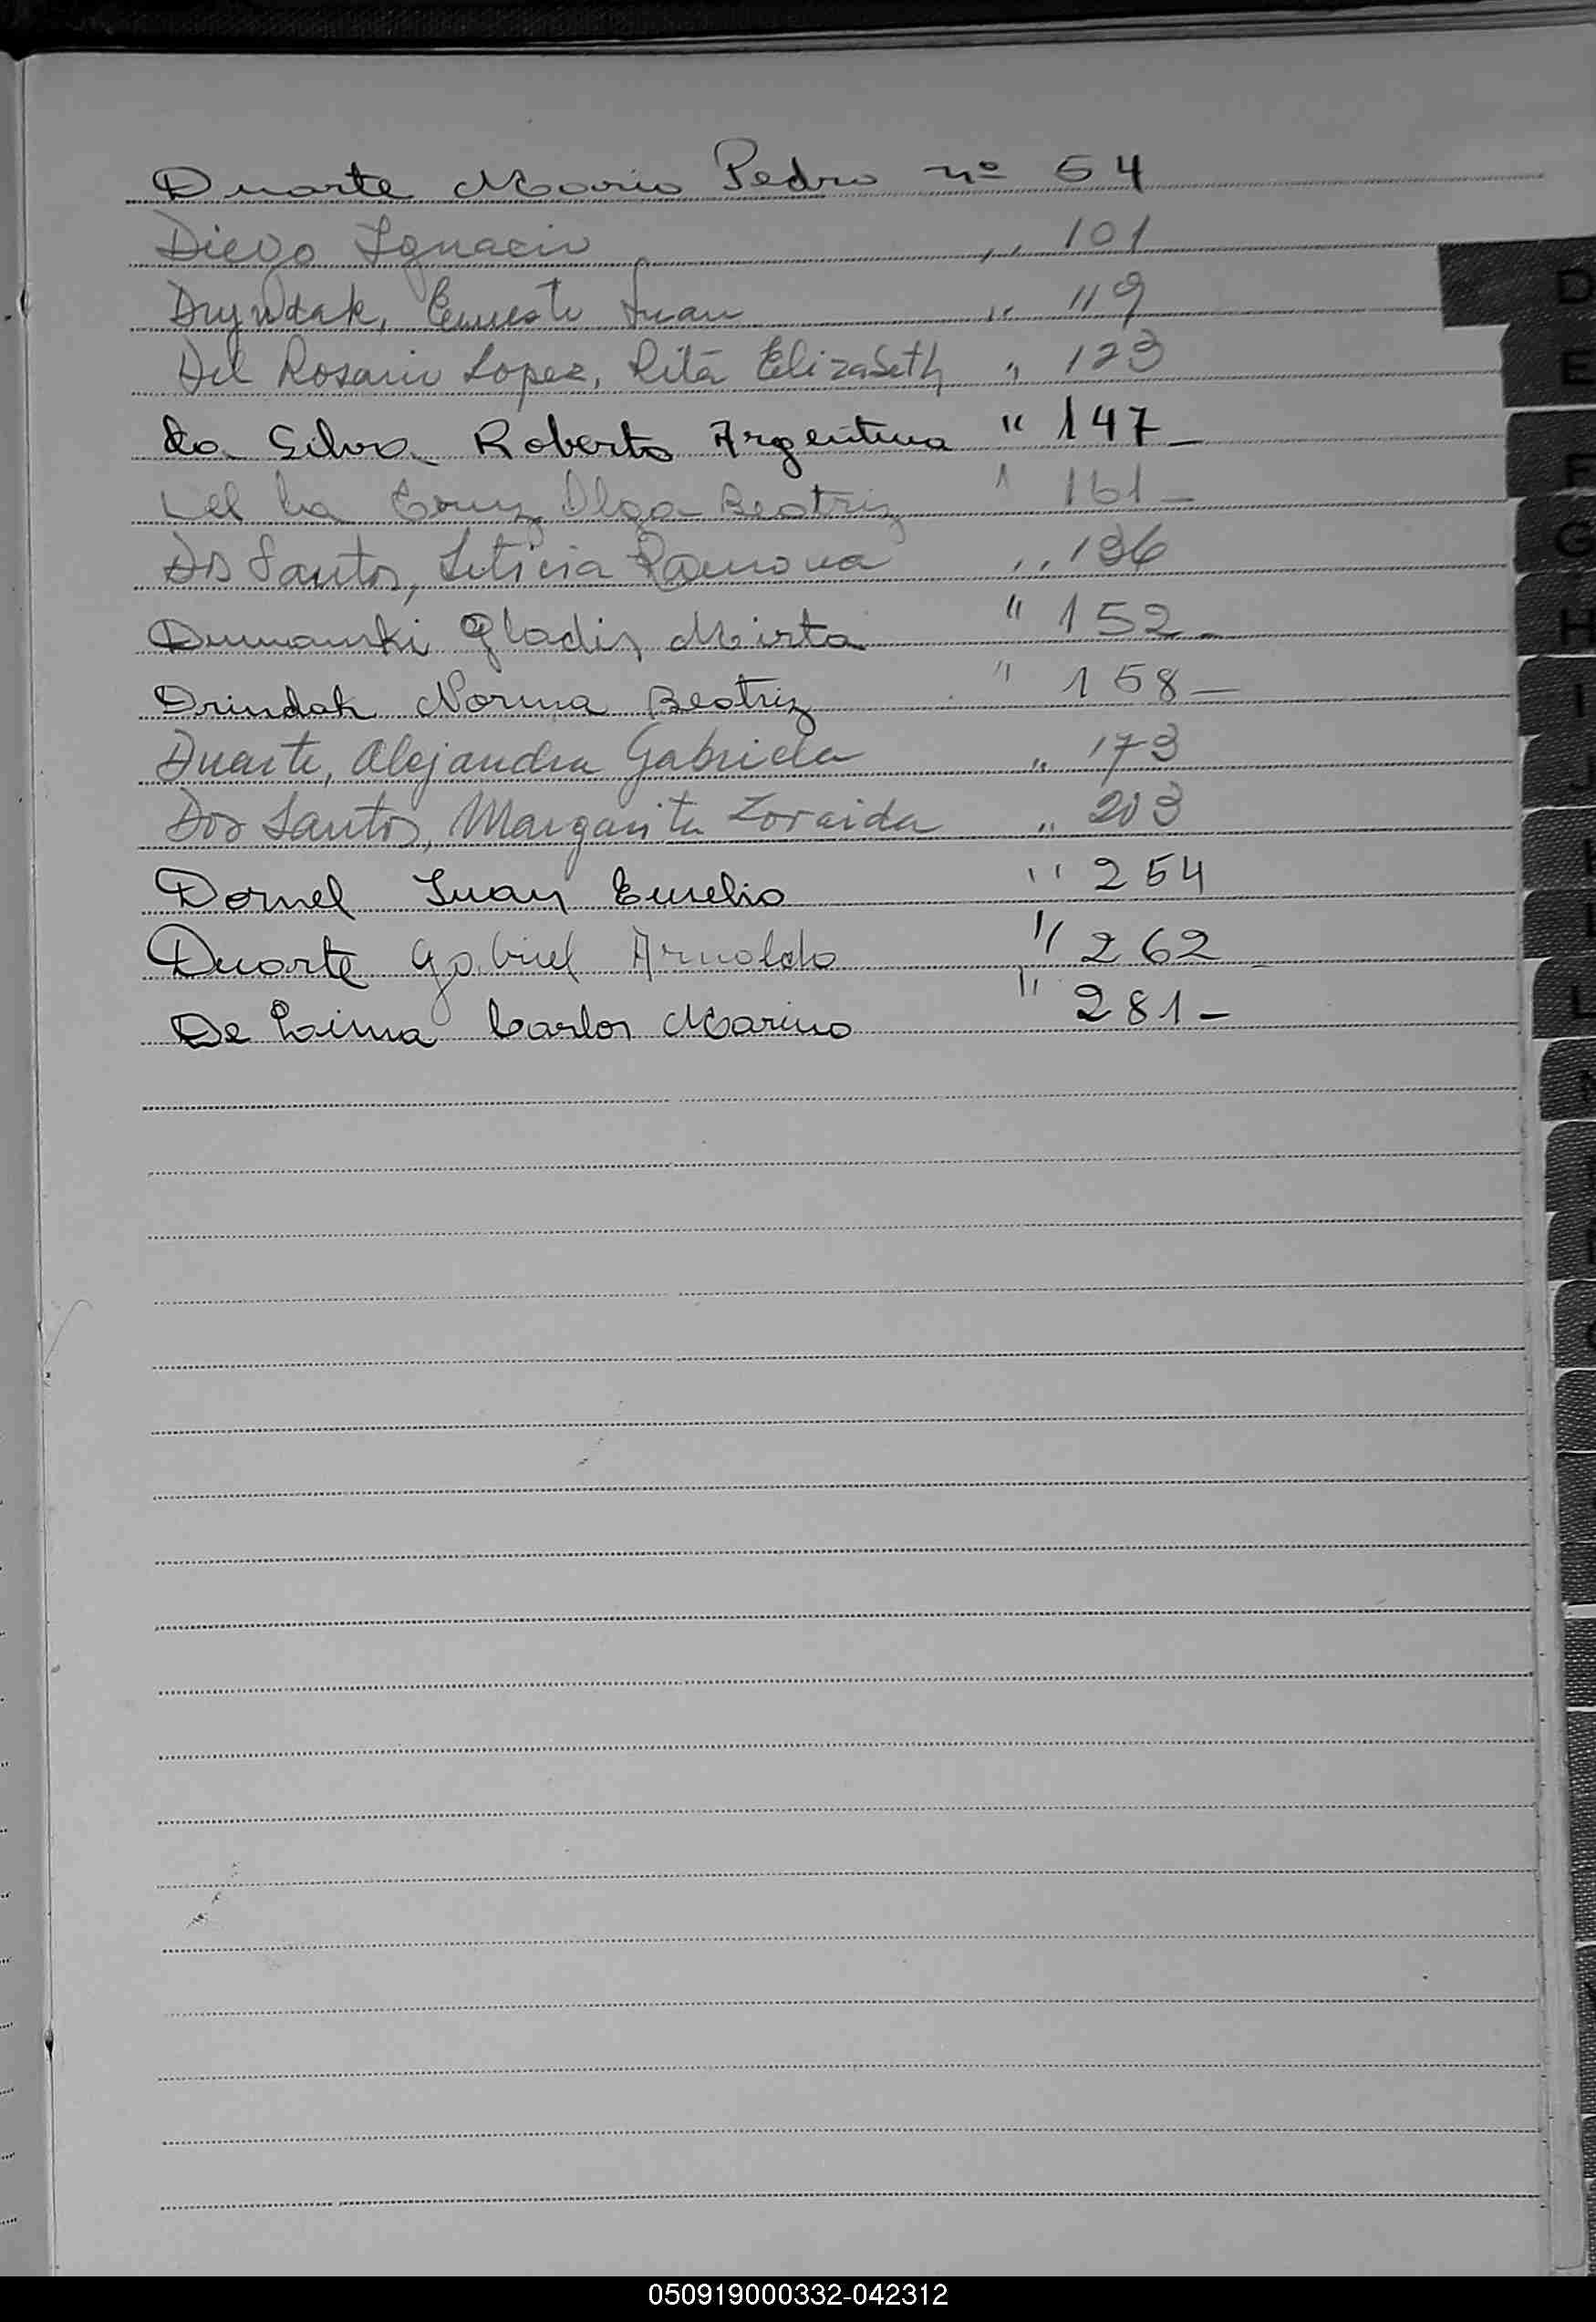 Duarte Mario Pedro nº 54
Diego Ignacio ,, 101
Dryndak, Ernesto Juan ,, 119
Del Rosario Lopez, Rita Elizabeth ,, 123
da Silva Roberto Argentino " 147-
del la Cruz Olga Beatriz " 161-
Dos Santos, Leticia Ramona ,, 136
Dumanski Gladis Mirta " 152-
Drindak Norma Beatriz " 158-
Duarte, Alejandra Gabriela ,, 173
Dos Santos, Margarita Zoraida ,, 203
Dornel Juan Eurelio " 254
Duarte Gabriel Arnoldo " 262-
De Lima Carlos Marino " 281-
D
E
F
G
H
I
J
050919000332-042312